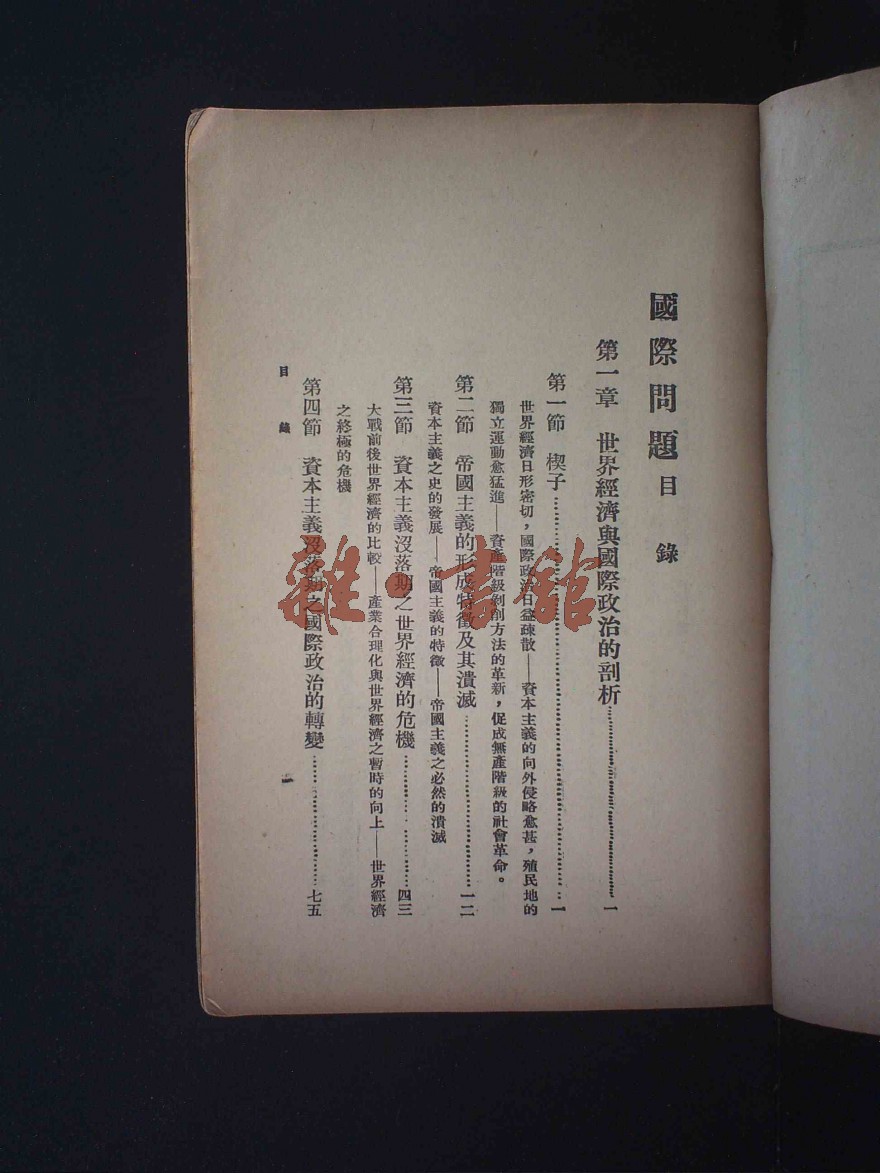 國際問題目錄
第一章 世界經濟與國際政治的剖析……………………一
第一節 楔子……………………一
世界經濟日形密切，國際政治日益疎散——資本主義的向外侵略愈甚，殖民地的
獨立運動愈猛進——資產階級剝削方法的革新，促成無產階級的社會革命。
第二節 帝國主義的形成特徵及其潰滅……………………一二
資本主義之史的發展——帝國主義的特徵——帝國主義之必然的潰滅
第三節 資本主義沒落期之世界經濟的危機……………………四三
大戰前後世界經濟的比較——產業合理化與世界經濟之暫時的向上——世界經濟
之終極的危機
第四節 資本主義沒落期之國際政治的轉變……………………七五
目錄 一
雜·書館